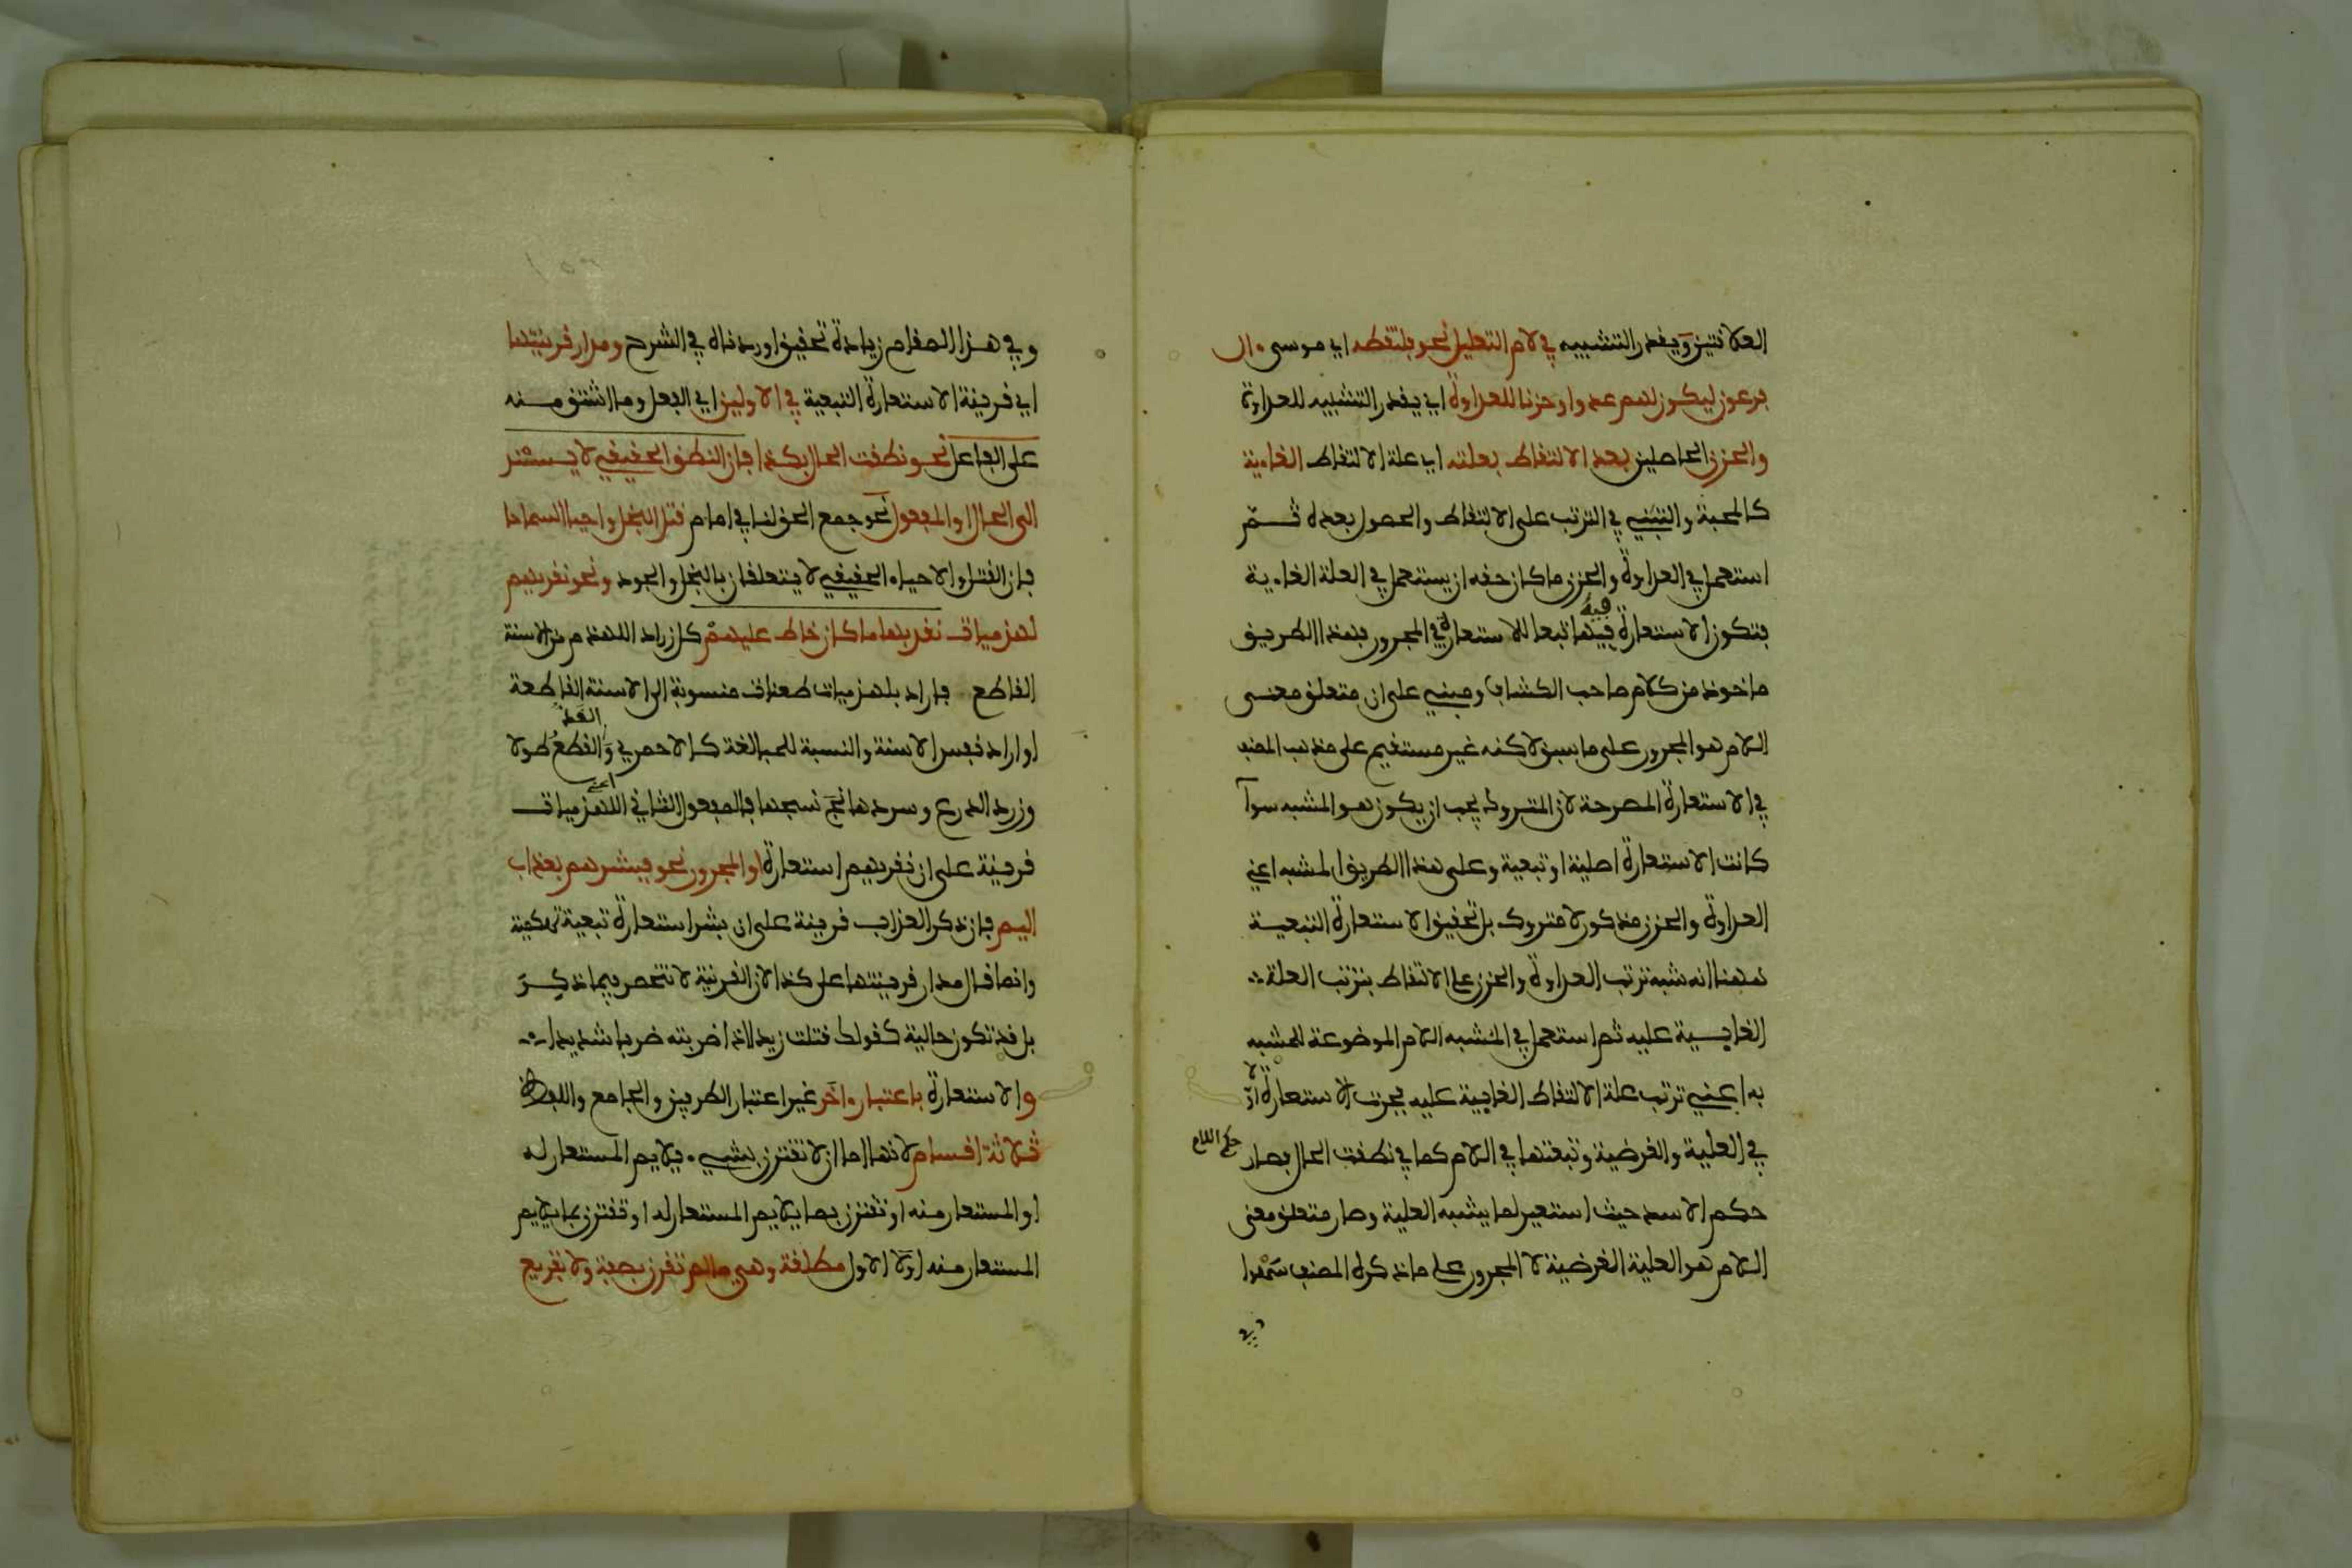 العلاقتين ويقدر التشبيه في لام التعليل نحو فالتقطه اي موسى ءال
فرعون ليكون لهم عدوا وحزنا للعداوة اي يقدر التشبيه للعداوة
والحزن الحاصلين بعد الالتقاط بعلته اي علة الالتقاط الغاءية
كالمحبة والتبني في الترتب على الالتقاط والحصول بعده ثم
استعمل في العداوة والحزن ما كان حقه ان يستعمل في العلة الغاءية
فتكون الاستعارة فيها تبعا للاستعارة في المجرور وهذا الطريق
فيه
ماخوذ من كلام صاحب الكشاف ومبني على ان متعلق معنى
اللام هو المجرور على ما سبق لاكنه غير مستقيم على مذهب المصنف
في الاستعارة المصرحة لان المتروك يجب ان يكون هو المشبه سوآ
كانت الاستعارة اصلية او تبعية وعلى هذا الطريق المشبه اعني
العداوة والحزن مذكور لا متروك بل تحقيق الاستعارة التبعية
هاهنا انه شبه ترتب العداوة والحزن على الالتقاط بترتب العلة
الغايية عليه ثم استعمل في المشبه اللام الموضوعة للمشبه
به اعني ترتب علة الالتقاط الغايية عليه فجرت الاستعارة اولا
في العلية والغرضية وتبعتها في اللام كما في نطقت الحال فصار
حكم اللام
حكم الاسد حيث استعير لما يشبه العلية وصار متعلق معنى
اللام هو العلية الغرضية لا المجرور على ما ذكره المصنف سهوا
وفي
وفي هذا المقام زيادة تحقيق اوردناه في الشرح ومدار قرينتها
اي قرينة الاستعارة التبعية في الاولين اي الفعل وما اشتق منه
على الفاعل نحو نطقت الحال بكذا فان النطق الحقيقي لا يسند
الى الحال او المفعول نحو جمع الحق لنا في امام قتل البخل واحيا السماحا
فان القتل والاحياء الحقيقي لا يتعلقان بالبخل والجود ونحو نقريهم
لهذميات نقد بها ما كان خاط عليهم كل زراد اللهذم من الاسنة
القاطع فاراد بلهذميات طعنات منسوبة الى الاسنة القاطعة
او اراد نفس الاسنة والنسبة للمبالغة كالاحمري والقطع طولا
القد
وزرد الدرع وسردها نسجها فالمفعول الثاني اللهذميات
اعني
قرينة على ان نقريهم استعارة او المجرور نحو فبشرهم بعذاب
اليم فان ذكر العذاب قرينة على ان بشر استعارة تبعية تهكمية
وانما قال مدار قرينتها على كذا لان القرينة لا تنحصر فيما ذكر
بل قد تكون حالية كقولك قتلت زيدا اذا ضربته ضربا شديدا
والاستعارة باعتبار ءاخر غير اعتبار الطرفين والجامع واللفظ
ثلاثة اقسام لانها اما ان لا تقترن بشيء يلايم المستعار له
او المستعار منه او تقترن بما يلايم المستعار له او تقترن بما يلايم
المستعار منه اولا الاول مطلقة وهي ما لم تقرن بصفة ولا تفريع